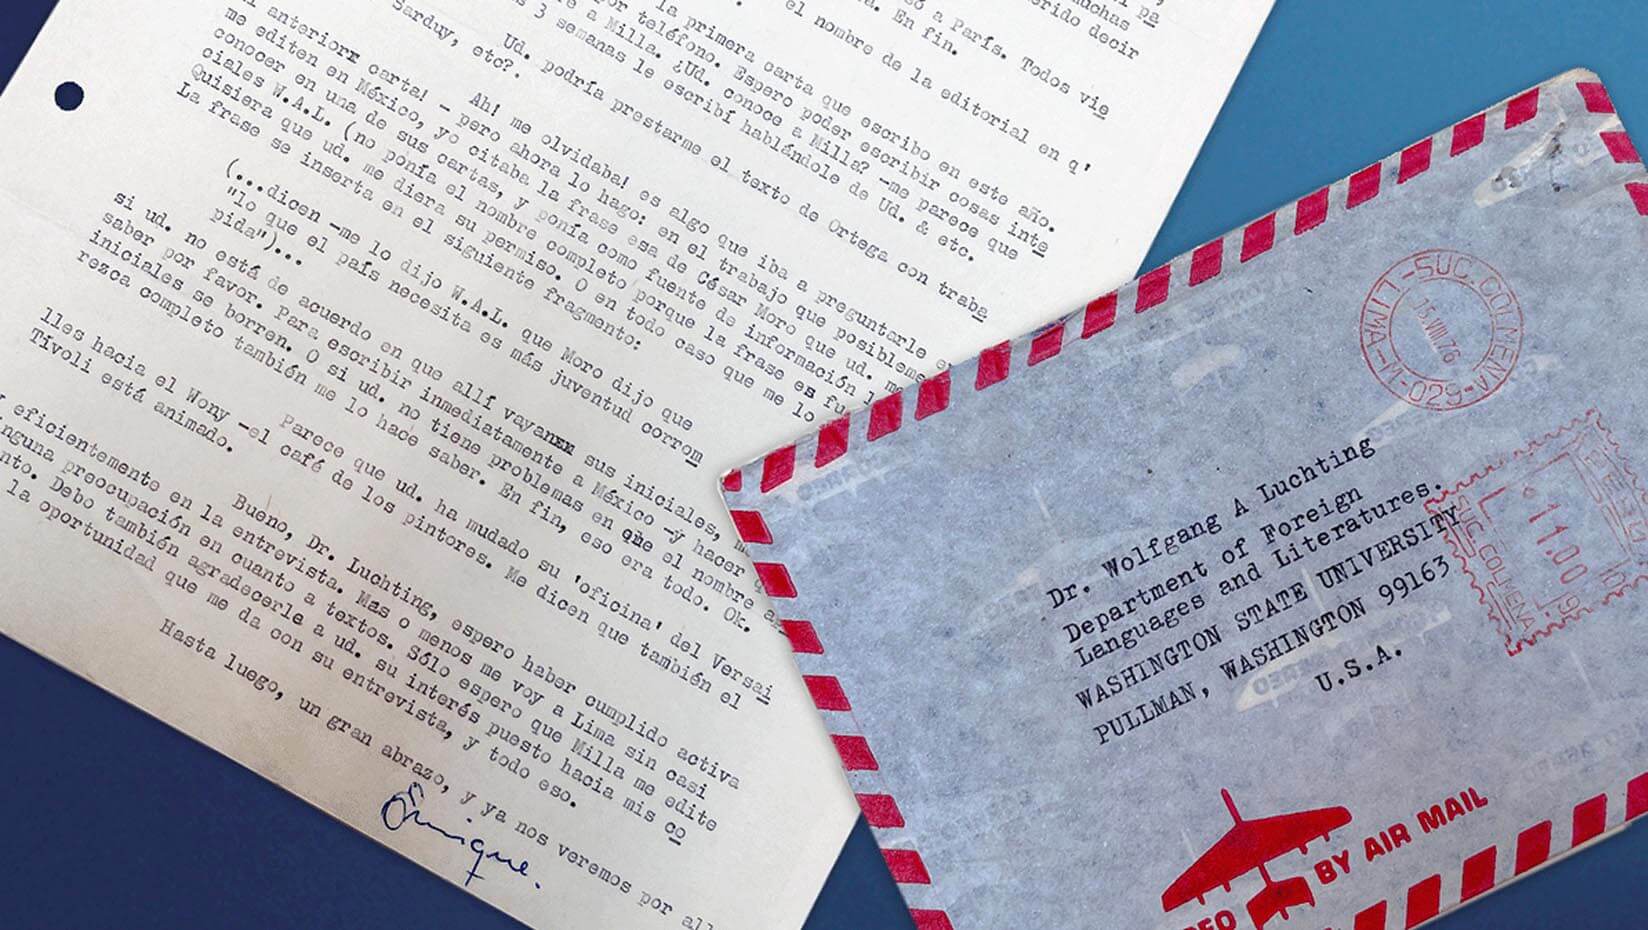 pa
muchas
erido decir
ó a París. Todos vie
d. En fin.
el nombre de la editorial en q'
la primera carta que escribo en este año.
por teléfono. Espero poder escribir cosas inte
re a Milla. ¿Ud. conoce a Milla? -me parece que
s 3 semanas le escribí hablándole de Ud. & etc.
Ud. podría prestarme el texto de Ortega con traba
Sarduy, etc?.
Ah! me olvidaba! es algo que iba a preguntarle e
i anteriorx carta! - pero ahora lo hago: en el trabajo que posibleme
me editen en México, yo citaba la frase esa de César Moro que ud. me
conocer en una de sus cartas, y ponía como fuente de información
ciales W.A.L. (no ponía el nombre completo porque la frase es fu
Quisiera que ud. me diera su permiso. O en todo caso que me lo
La frase se inserta en el siguiente fragmento:
(...dicen -me lo dijo W.A.L. que Moro dijo que
"lo que el país necesita es más juventud corrom
pida")...
si ud. no está de acuerdo en que allí vayanxn sus iniciales,
saber por favor. Para escribir inmediatamente a México -y hacer
iniciales se borren. O si ud. no tiene problemas en que el nombre
rezca completo también me lo hace saber. En fin, eso era todo. Ok.
Parece que ud. ha mudado su 'oficina' del Versai
lles hacia el Wony -el café de los pintores. Me dicen que también el
Tívoli está animado.
Bueno, Dr. Luchting, espero haber cumplido activa
y eficientemente en la entrevista. Mas o menos me voy a Lima sin casi
nguna preocupación en cuanto a textos. Sólo espero que Milla me edite
nto. Debo también agradecerle a ud. su interés puesto hacia mis co
la oportunidad que me da con su entrevista, y todo eso.
Hasta luego, un gran abrazo, y ya nos veremos por all
Enrique.
LIMA-SUC.COLMENA-029-W
15 VIII 76
11.00
SUC COLMENA
Dr. Wolfgang A Luchting
Department of Foreign
Languages and Literatures.
WASHINGTON STATE UNIVERSITY
PULLMAN, WASHINGTON 99163
U.S.A.
REO BY AIR MAIL